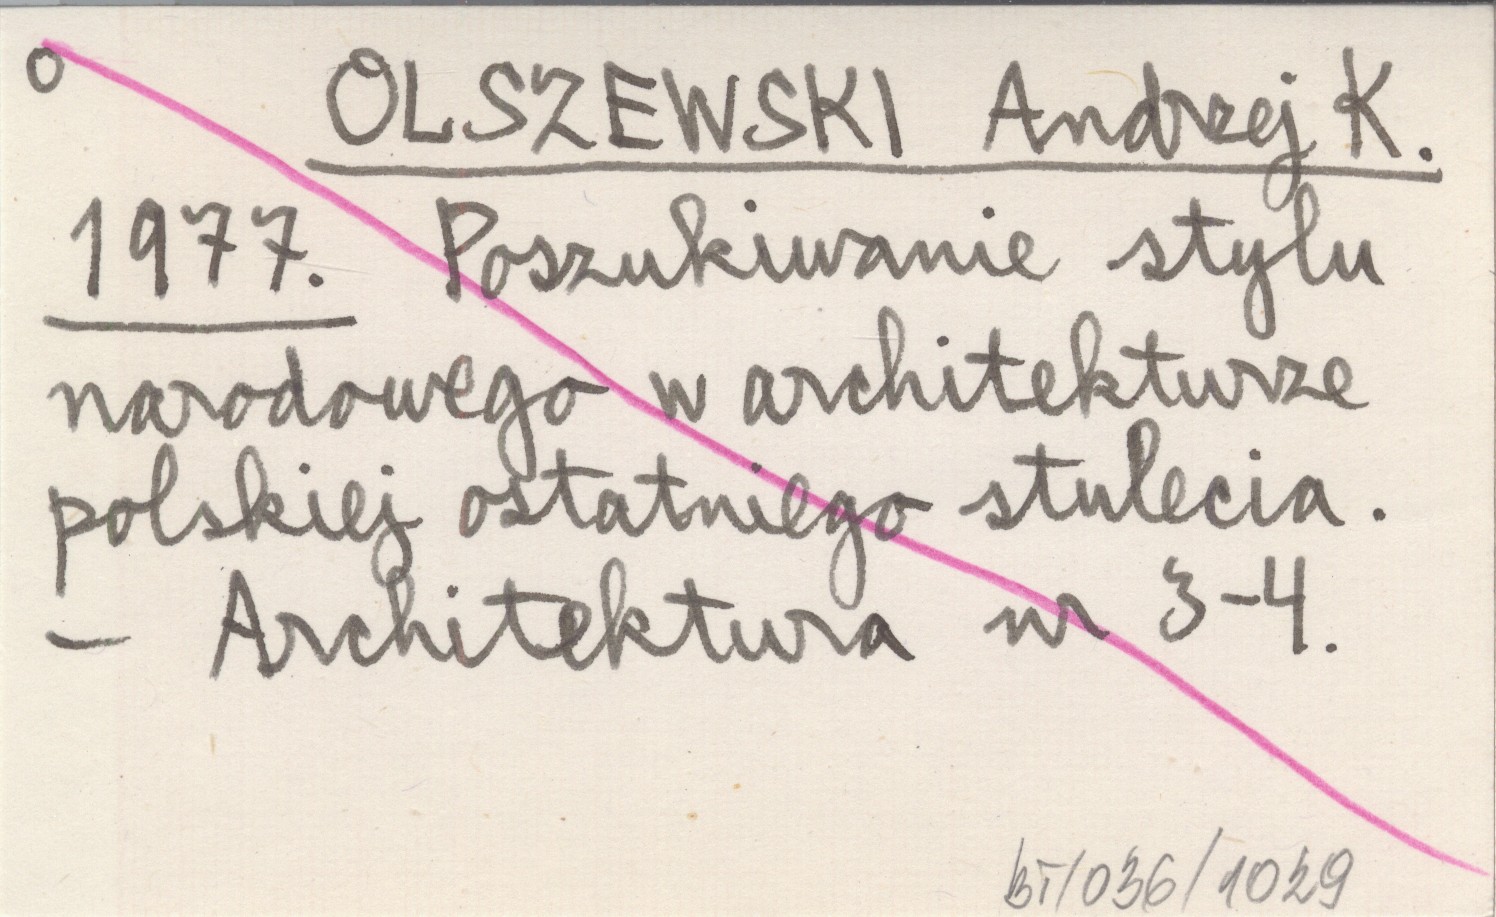 o OLSZEWSKI Andrzej K.
1977. Poszukiwanie stylu
narodowego w architekturze
polskiej ostatniego stulecia.
– Architektura nr 3-4.
BT/036/1029